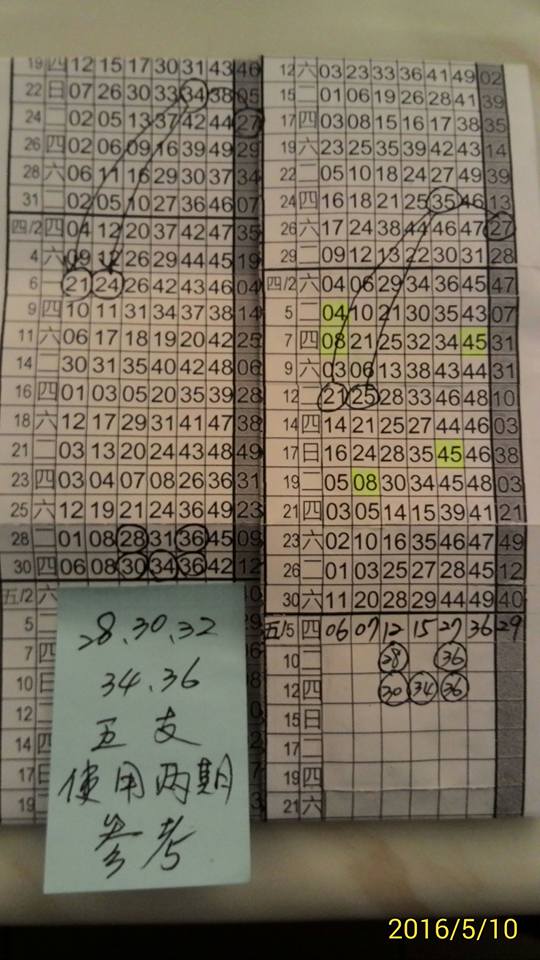 19 四 12 15 17 30 31 43 46
22 日 07 26 30 33 34 38 05
24 二 02 05 13 37 42 44 27
26 四 02 06 09 16 39 49 29
28 六 06 11 16 29 30 37 34
31 二 02 05 10 27 36 46 07
四/2 四 04 12 20 37 42 47 35
4 六 09 12 26 29 44 45 19
6 一 21 24 26 42 43 46 04
9 四 10 11 31 34 37 38 14
11 六 06 17 18 19 20 42 25
14 二 30 31 35 40 42 48 06
16 四 01 03 05 20 35 39 28
18 六 12 17 29 31 41 47 38
21 二 03 13 20 24 43 48 49
23 四 03 04 07 08 26 36 31
25 六 12 19 21 24 36 49 23
28 二 01 08 28 31 36 45 09
30 四 06 08 30 34 36 42 12
五/2 六
5 二
7 四
10 日
12 二
14 四
17 日
19 二
28、30、32
34、36
五支
使用两期
参考
12 六 03 23 33 36 41 49 02
15 二 01 06 19 26 28 41 39
17 四 03 08 15 16 17 38 35
19 六 23 25 35 39 42 43 14
22 二 05 10 18 24 27 49 39
24 四 16 18 21 25 35 46 13
26 六 17 24 38 44 46 47 27
29 二 09 12 13 22 30 31 28
四/2 六 04 06 29 34 36 45 47
5 二 04 10 21 30 35 43 07
7 四 08 21 25 32 34 45 31
9 六 03 06 13 38 43 44 31
12 二 21 25 28 33 46 48 10
14 四 14 21 25 27 44 46 03
17 日 16 24 28 35 45 46 38
19 二 05 08 30 34 45 48 03
21 四 03 05 14 15 39 41 21
23 六 02 10 16 35 46 47 49
26 二 01 03 25 27 28 45 12
30 六 11 20 28 29 44 49 40
五/5 四 06 07 12 15 27 36 29
10 二 28 36
12 四 30 34 36
15 日
17 二
19 四
21 六
2016/5/10